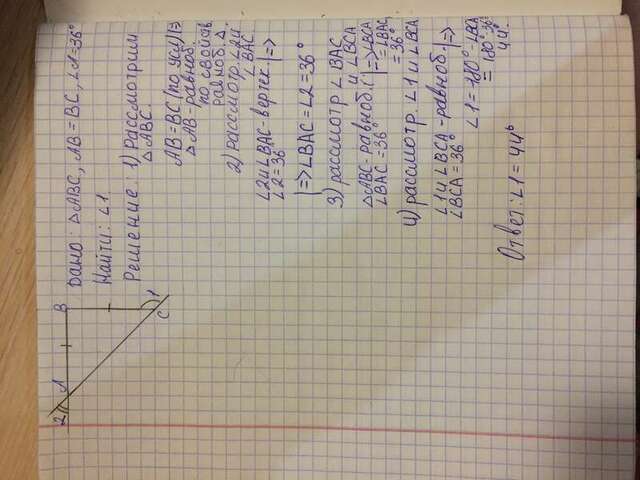 2 A B
C 1
Дано: △ABC, AB = BC, ∠1=36°
Найти: ∠1.
Решение: 1) Рассмотрим
△ABC.
AB=BC (по усл)|⇒
△AB-равноб.
по свойств.
равноб. △.
2) рассмотр. ∠2 и
∠BAC.
∠2 и ∠BAC - вертек.|⇒
∠2=36°
|⇒ ∠BAC = ∠2 = 36°
3) рассмотр ∠BAC
и ∠BCA
△ABC-равноб.|⇒ ∠BCA
∠BAC = 36° =∠BAC
= 36°
4) рассмотр. ∠1 и ∠BCA
∠1 и ∠BCA - равноб.|⇒
∠BCA = 36°
∠1 = 180° - ∠BCA
= 180°-36=
44°.
Ответ: ∠1 = 44°